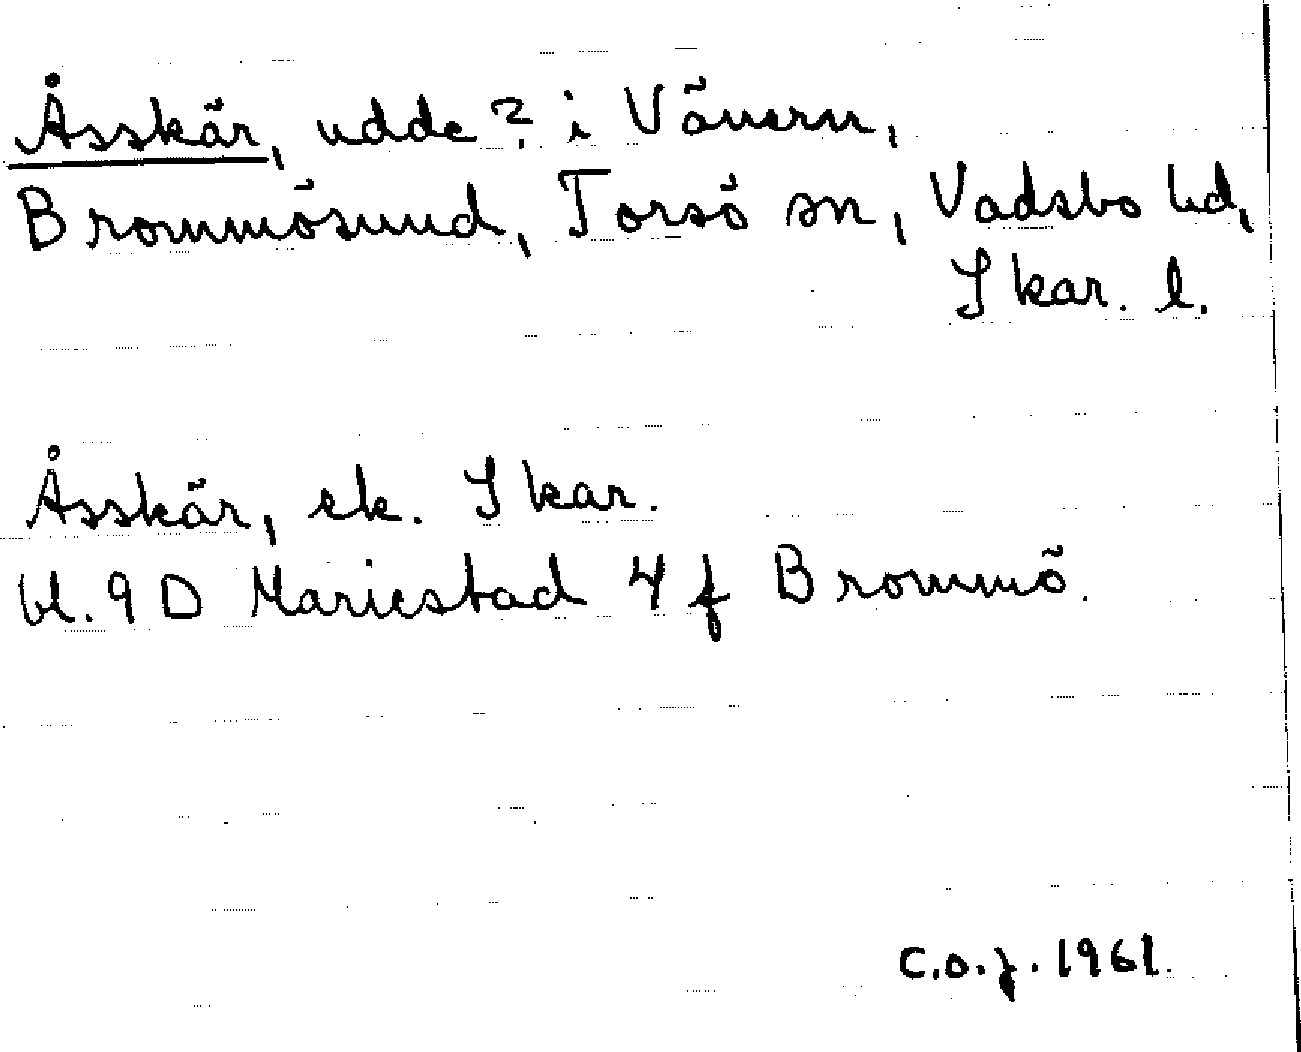 Åsskär, udde? i Vänern,
Brommösund, Torsö sn, Vadsbo hd,
Skar. l.
Åsskär, ek. Skar.
bl. 9 D Mariestad 4 f Brommö.
C.O.J. 1961.